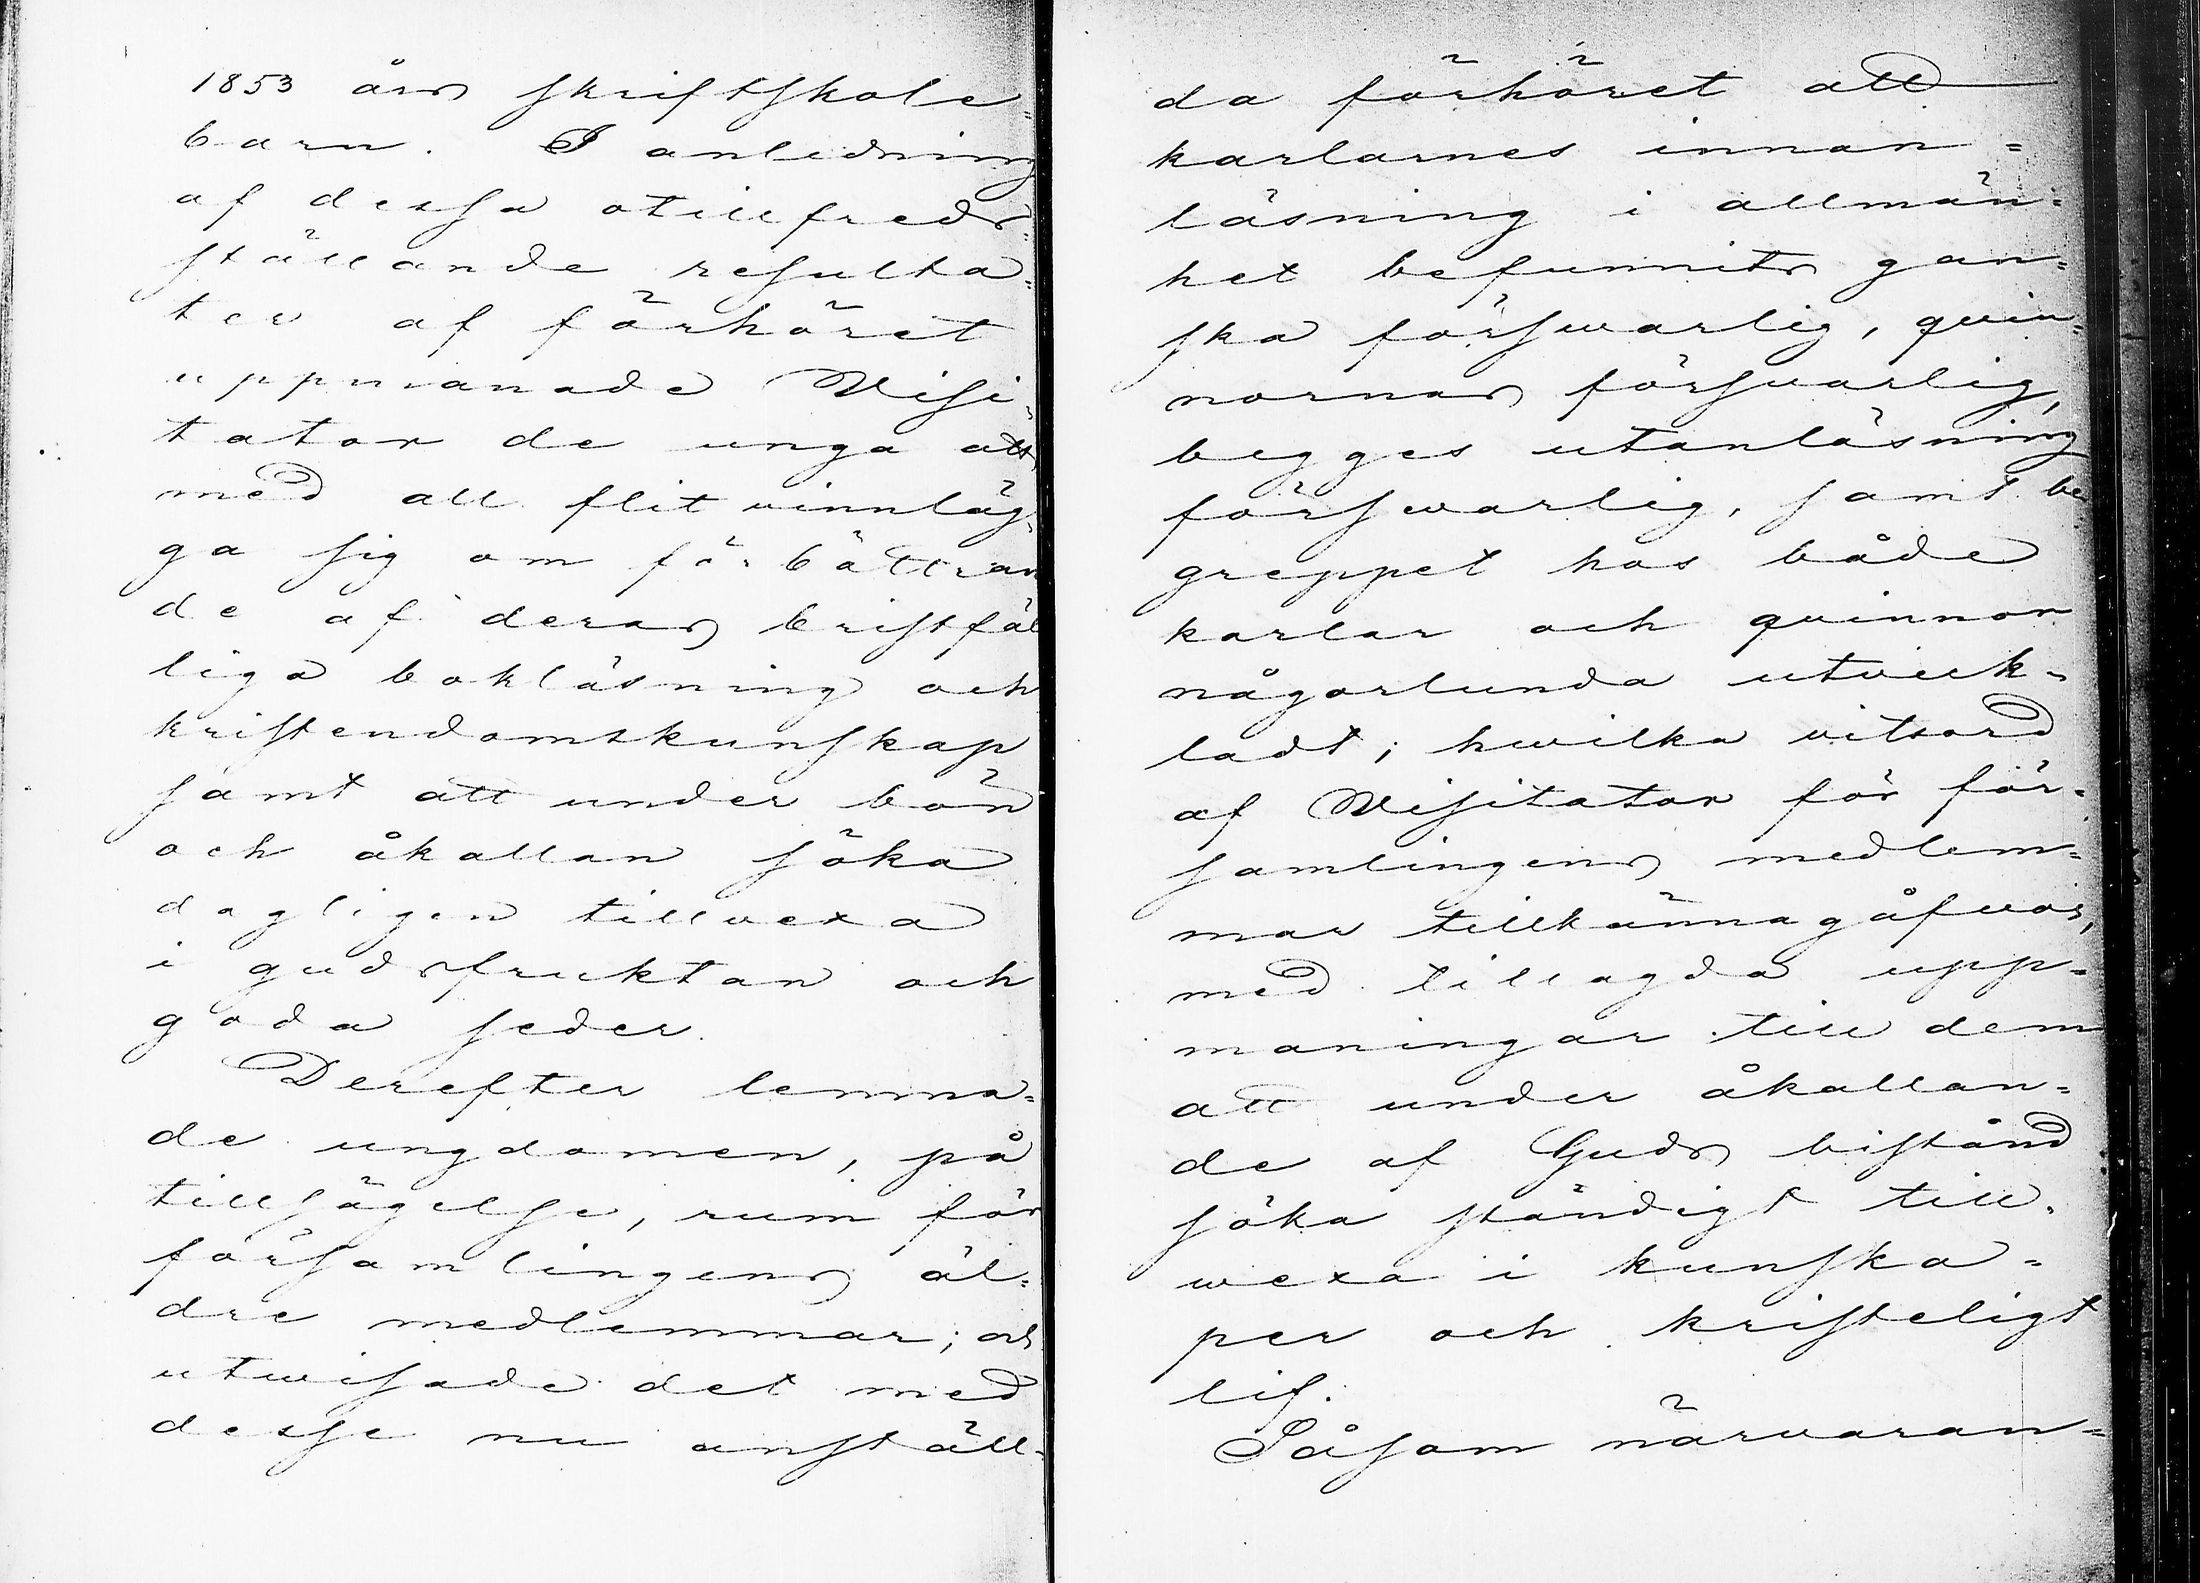 1853 års skriftskole=
barn. I anledning
af dessa otillfreds=
ställande resulta=
ter af förhöret
uppmanade Visi=
tator de unga att
med all flit vinnläg=
ga sig om förbättran
de af deras bristfäl
liga bokläsning och
kristendomskunskap
samt att under bön
och åkallan söka
dagligen tillvexa
i gudsfruktan och
goda seder.
Derefter lemna=
de ungdomen, på
tillsägelse, rum för
församlingens äl=
dre medlemmar; och
utwisade det med
desse nu anställ=
da förhöret att
karlarnes innan=
läsning i allmän=
het befunnits gan=
ska förswarlig, quin=
nornas förswarlig,
begges utanläsning
förswarlig, samt be
greppet hos både
karlar och quinnor
någorlunda utveck=
ladt; hwilka vitsord
af Visitator för för=
samlingens medlem=
mar tillkännagåfvos,
med tillagda upp=
maningar till dem
att under åkallan=
de af Guds bistånd
söka ständigt till=
wexa i kunska=
per och kristeligt
lif.
Såsom närvaran=